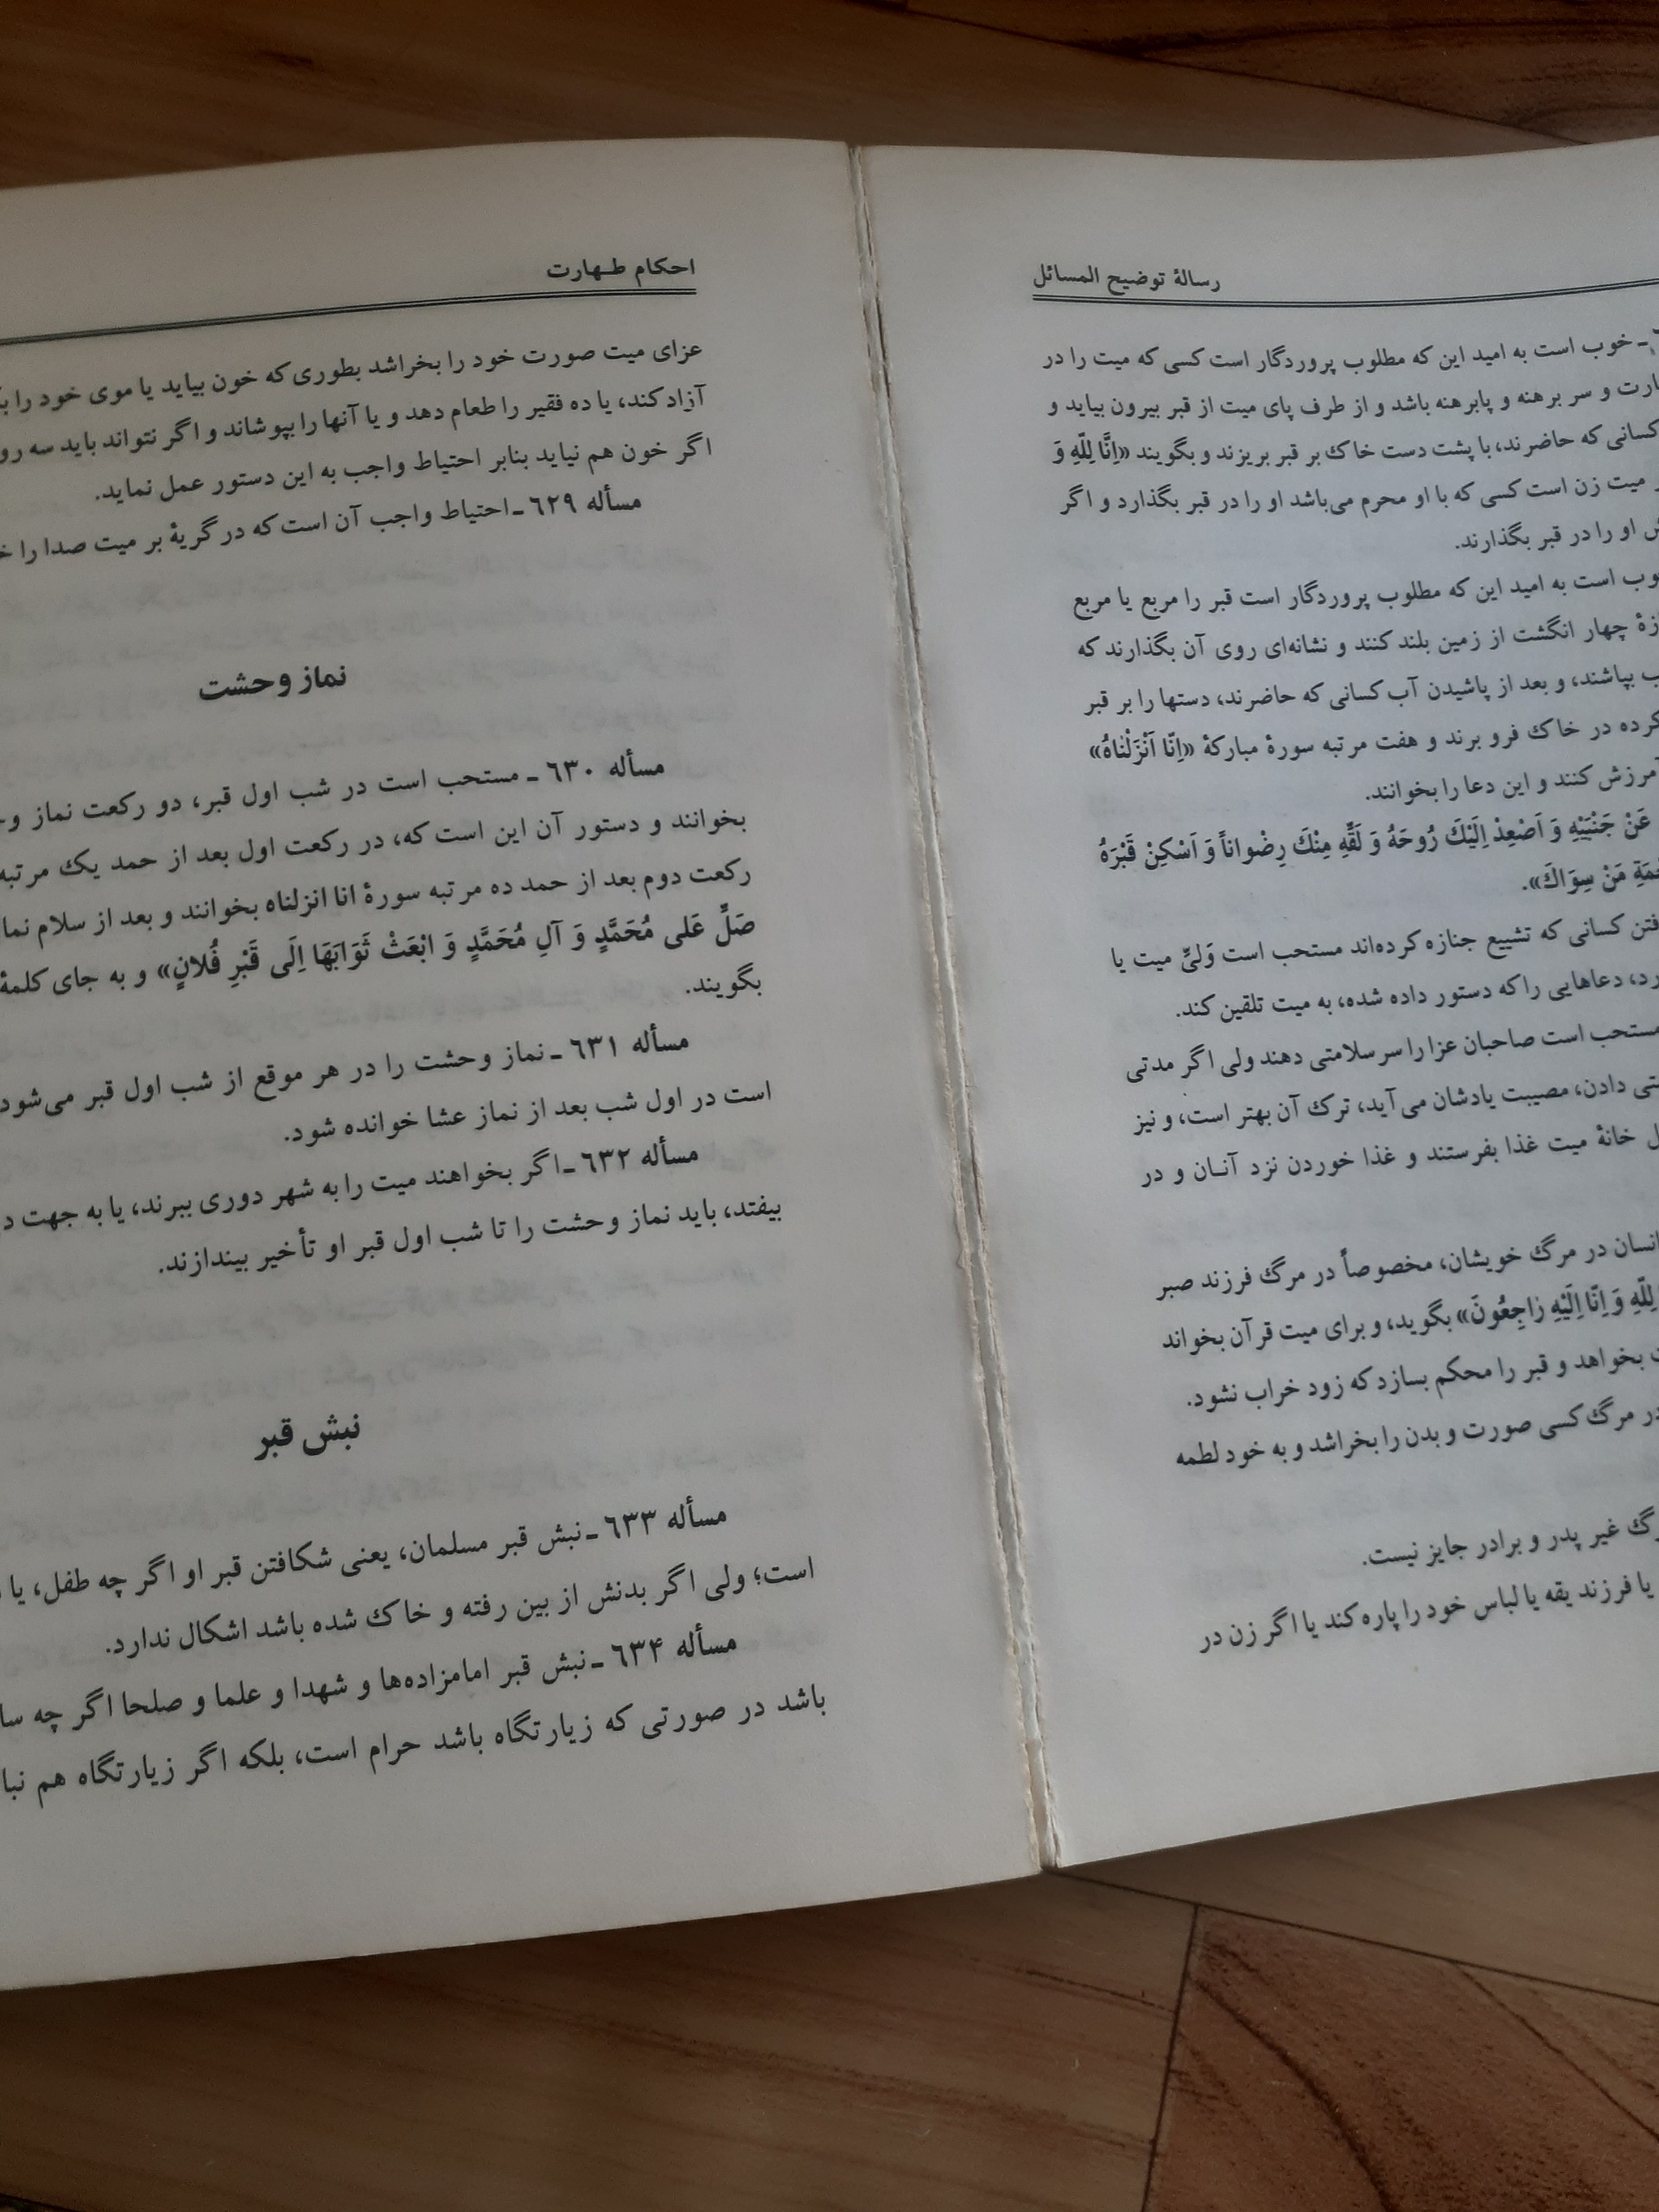 رسالهٔ توضیح المسائل
ـ خوب است به امید این که مطلوب پروردگار است کسی که میت را در
و سر برهنه و پابرهنه باشد و از طرف پای میت از قبر بیرون بیاید و
کسانی که حاضرند، با پشت دست خاک بر قبر بریزند و بگویند «اِنَّا لِلّٰهِ وَ
میت زن است کسی که با او محرم می‌باشد او را در قبر بگذارد و اگر
او را در قبر بگذارند.
است به امید این که مطلوب پروردگار است قبر را مربع یا مربع
چهار انگشت از زمین بلند کنند و نشانه‌ای روی آن بگذارند که
بپاشند، و بعد از پاشیدن آب کسانی که حاضرند، دستها را بر قبر
کرده در خاک فرو برند و هفت مرتبه سورهٔ مبارکهٔ «اِنّا اَنْزَلْناهُ»
آمرزش کنند و این دعا را بخوانند.
عَنْ جَنْبَیْهِ وَ اَصْعِدْ اِلَیْكَ رُوحَهُ وَ لَقِّهِ مِنْكَ رِضْواناً وَ اَسْکِنْ قَبْرَهُ
مَنْ سِوَاكَ».
کسانی که تشییع جنازه کرده‌اند مستحب است وَلیِّ میت یا
دعاهایی را که دستور داده شده، به میت تلقین کند.
مستحب است صاحبان عزا را سر سلامتی دهند ولی اگر مدتی
دادن، مصیبت یادشان می‌آید، ترک آن بهتر است، و نیز
خانهٔ میت غذا بفرستند و غذا خوردن نزد آنـان و در
انسان در مرگ خویشان، مخصوصاً در مرگ فرزند صبر
لِلّٰهِ وَ اِنّا اِلَیْهِ رٰاجِعُونَ» بگوید، و برای میت قرآن بخواند
بخواهد و قبر را محکم بسازد که زود خراب نشود.
در مرگ کسی صورت و بدن را بخراشد و به خود لطمه
غیر پدر و برادر جایز نیست.
یا فرزند یقه یا لباس خود را پاره کند یا اگر زن در
احکام طـهارت
عزای میت صورت خود را بخراشد بطوری که خون بیاید یا موی خود را
آزاد کند، یا ده فقیر را طعام دهد و یا آنها را بپوشاند و اگر نتواند باید سه
اگر خون هم نیاید بنابر احتیاط واجب به این دستور عمل نماید.
مسأله ٦٢٩ ـ احتیاط واجب آن است که در گریهٔ بر میت صدا را
نماز وحشت
مسأله ٦٣٠ ـ مستحب است در شب اول قبر، دو رکعت نماز
بخوانند و دستور آن این است که، در رکعت اول بعد از حمد یک مرتبه
رکعت دوم بعد از حمد ده مرتبه سورهٔ انا انزلناه بخوانند و بعد از سلام
صَلِّ عَلی مُحَمَّدٍ وَ آلِ مُحَمَّدٍ وَ ابْعَثْ ثَوَابَهَا اِلَی قَبْرِ فُلانٍ» و به جای کلمهٔ
بگویند.
مسأله ٦٣١ ـ نماز وحشت را در هر موقع از شب اول قبر می‌شود
است در اول شب بعد از نماز عشا خوانده شود.
مسأله ٦٣٢ ـ اگر بخواهند میت را به شهر دوری ببرند، یا به جهت
بیفتد، باید نماز وحشت را تا شب اول قبر او تأخیر بیندازند.
نبش قبر
مسأله ٦٣٣ ـ نبش قبر مسلمان، یعنی شکافتن قبر او اگر چه طفل، یا
است؛ ولی اگر بدنش از بین رفته و خاک شده باشد اشکال ندارد.
مسأله ٦٣۴ ـ نبش قبر امامزاده‌ها و شهدا و علما و صلحا اگر چه
باشد در صورتی که زیارتگاه باشد حرام است، بلکه اگر زیارتگاه هم